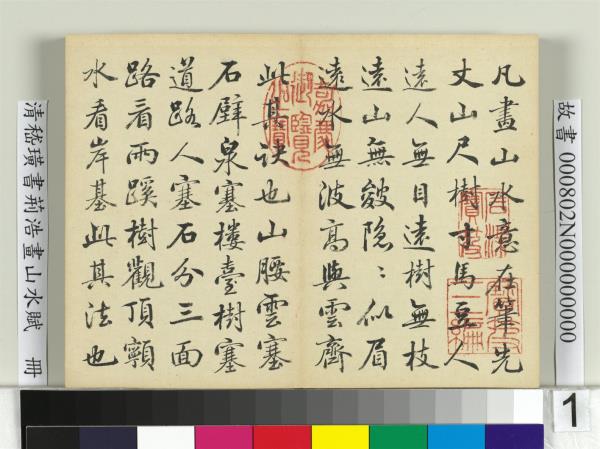 凡畫山水意在筆先
丈山尺樹寸馬豆人
遠人無目遠樹無枝
遠山無皴隱〻似眉
遠水無波高與雲齊
此其訣也山腰雲塞
石壁泉塞樓臺樹塞
道路人塞石分三面
路看兩蹊樹觀頂𩕳
水看岸基此其法也
嘉慶御覽之寶
故書 000802N000000000
1
清嵇璜書荊浩畫山水賦 冊